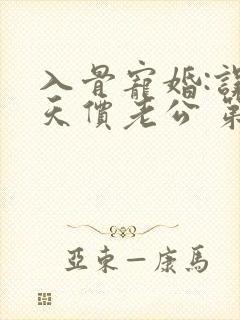 入骨寵婚:誤
天價老公 第
亞東—康馬